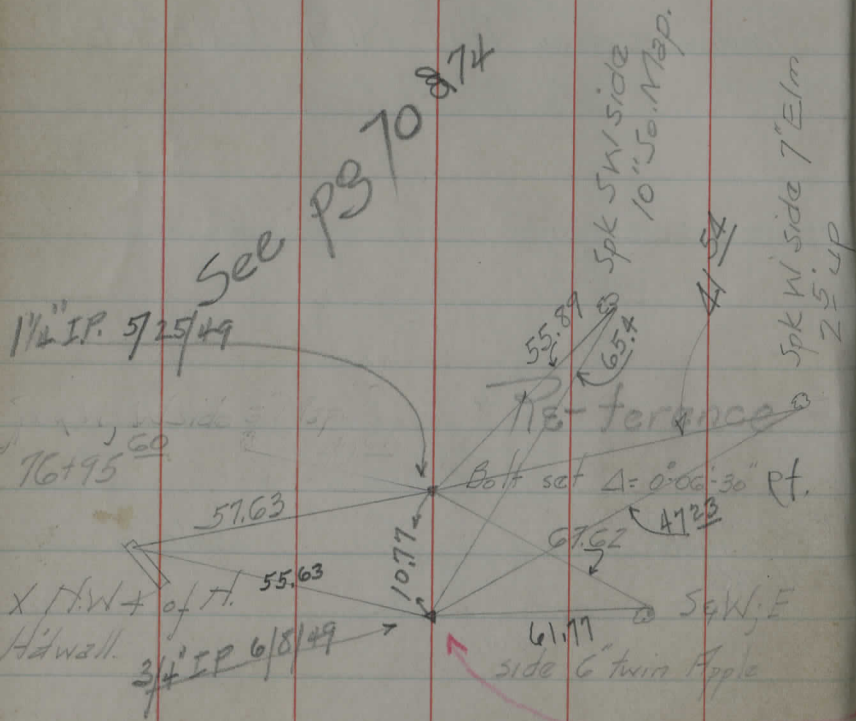 See pg 70 & 74
Spk SW side
10" So. Map.
Spk W side 7" Elm
2.5 up
41 54
1¼" I.P. 5/25/49
55.89
65.4
Re-ference
76+95 60
Bolt set Δ = 0°-06'-30" Rt.
57.63
47 23
67.62
10.77
55.63
X N.W + of H.
Hdwall.
61.77
side 6" twin Apple
3/4" I.P. 6/8/49